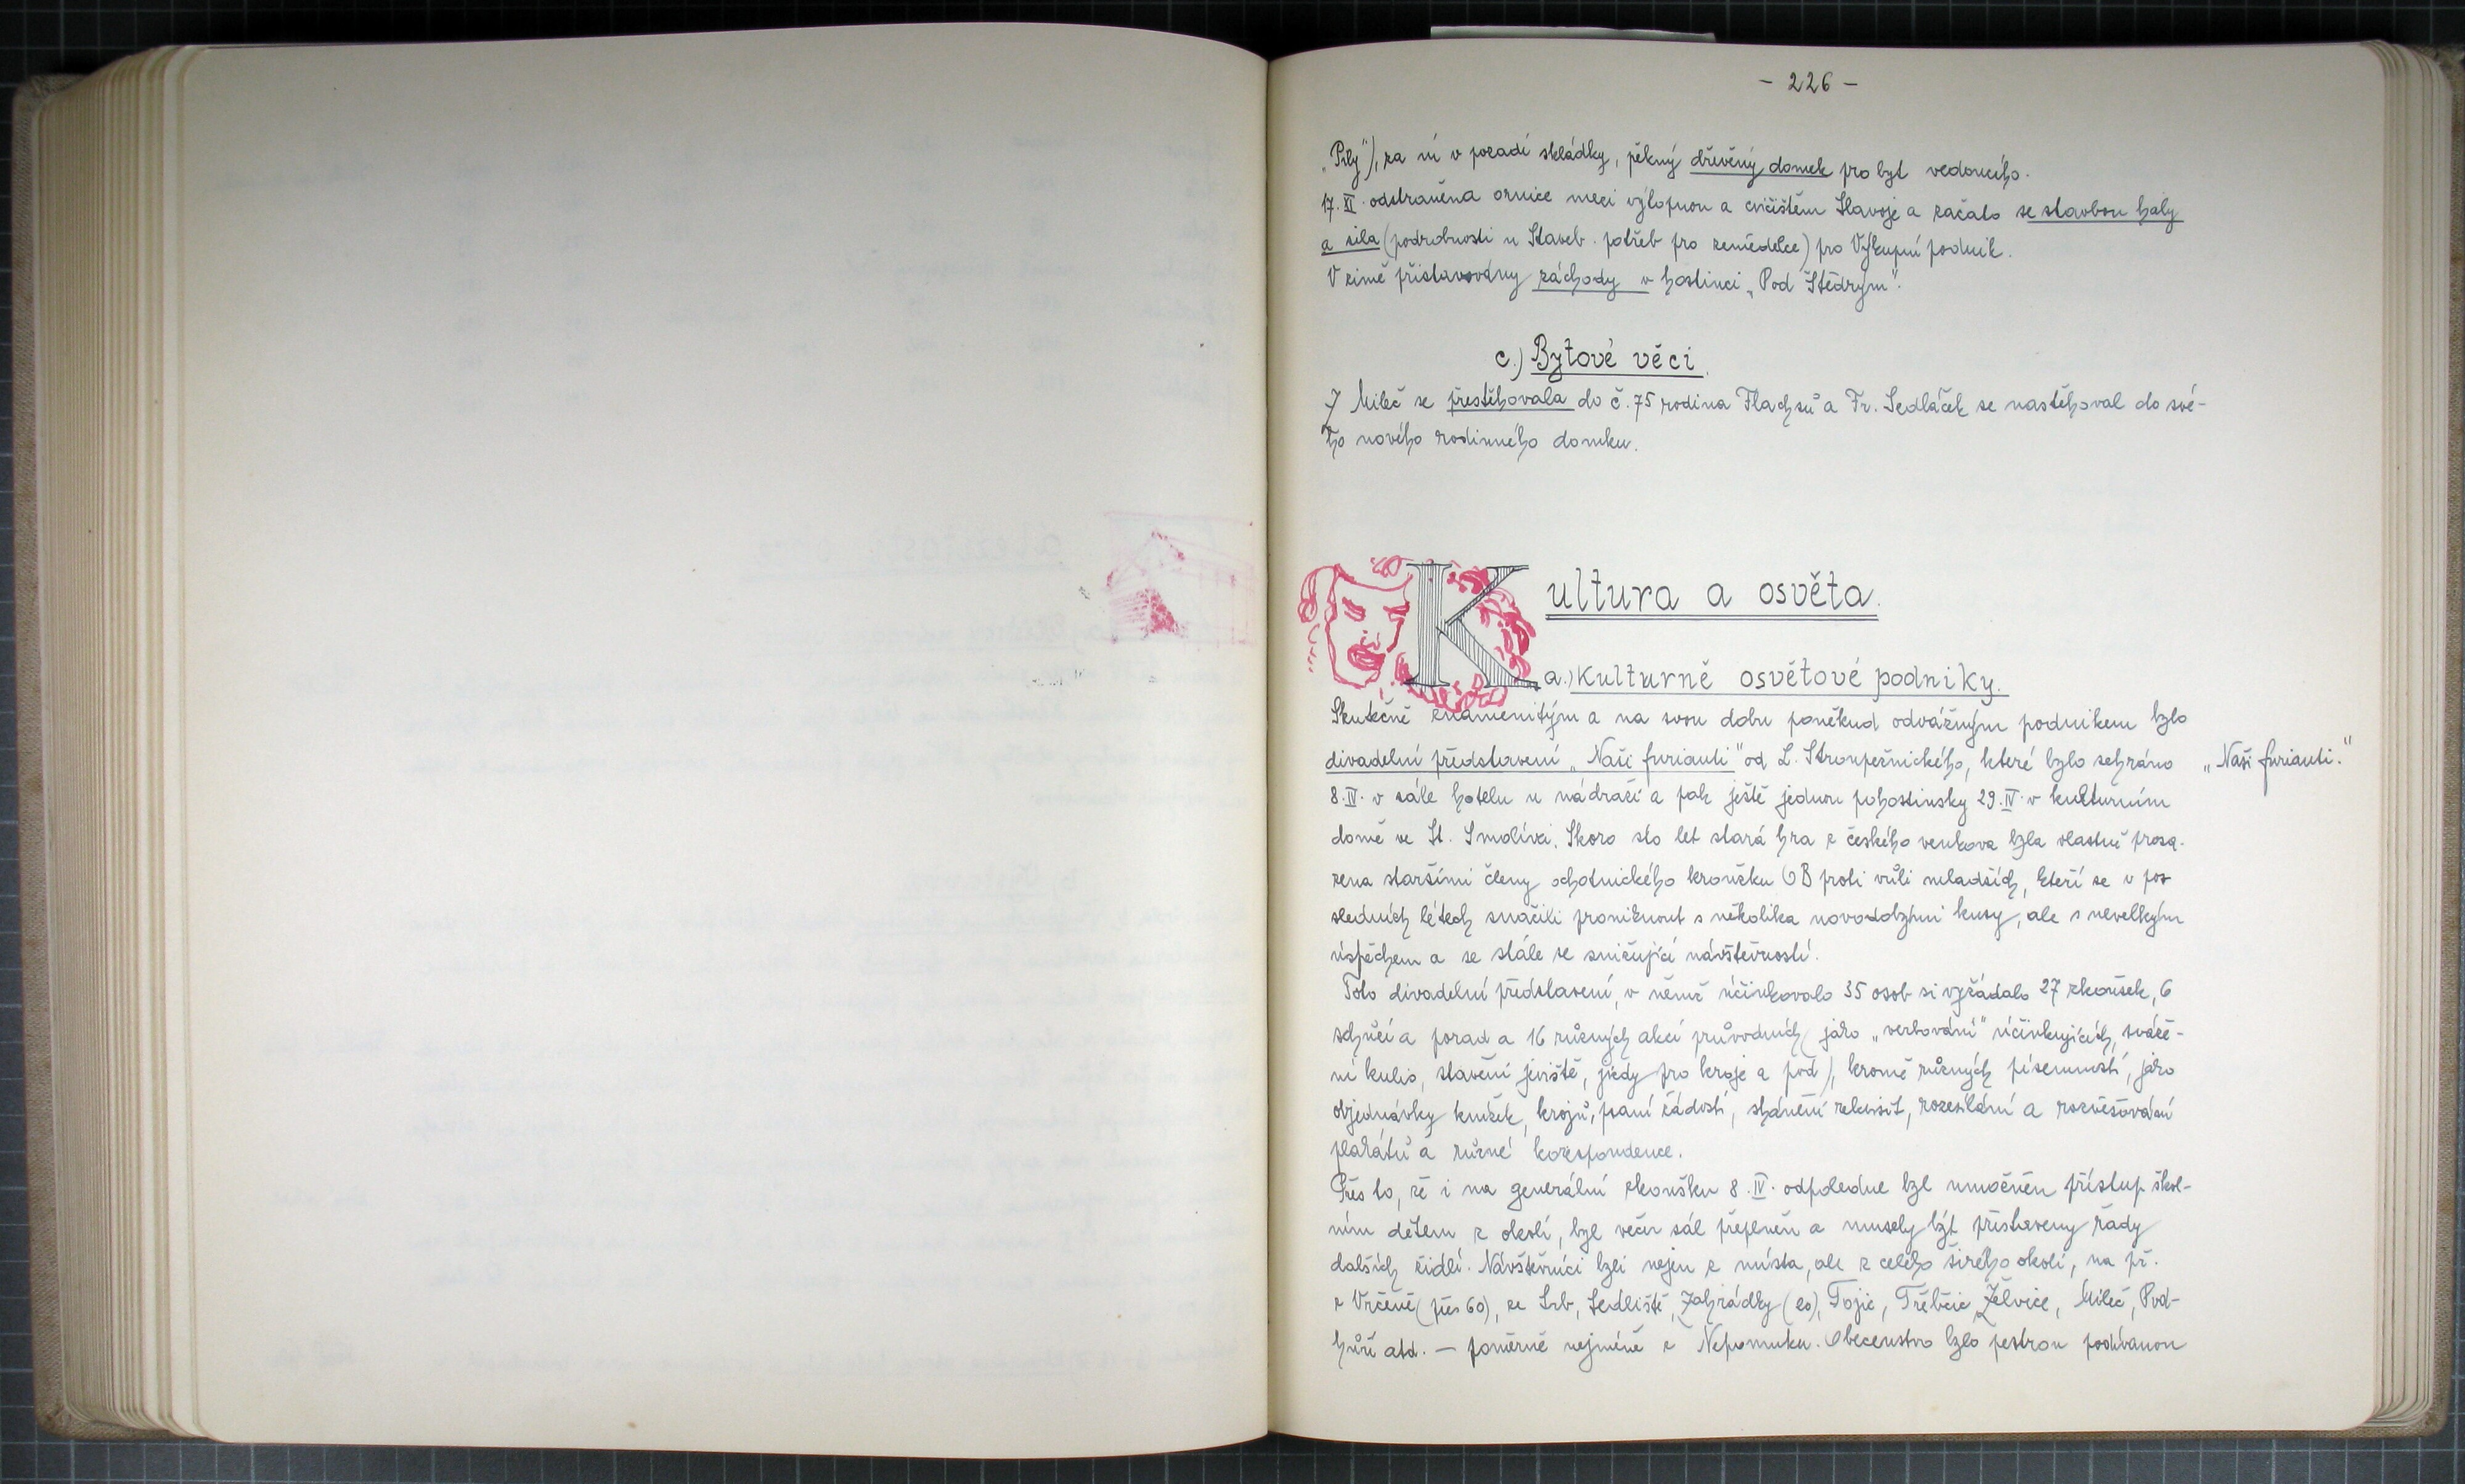 - 226 -
„Pily"), za ní v pozadí skládky, pěkný dřevěný domek pro byt vedoucího.
17. XI. odstraněna ornice mezi výlopnou a cvičištěm Slavoje a začalo se stavbou haly
a sila (podrobnosti u Staveb. potřeb pro zemědělce) pro Výkupní podnik.
V zimě přistavovány záchody v hostinci „Pod Štědrým".
c.) Bytové věci.
Z Milče se přestěhovala do č. 75 rodina Flachsů a Fr. Sedláček se nastěhoval do své-
ho nového rodinného domku.
Kultura a osvěta.
a.) Kulturně osvětové podniky.
Skutečně znamenitým a na svou dobu poněkud odvážným podnikem bylo
divadelní představení „Naši furianti" od L. Stroupežnického, které bylo sehráno
„Naši furianti."
8. IV. v sále hotelu u nádraží a pak ještě jednou pohostinsky 29. IV. v kulturním
domě ve St. Smolivci. Skoro sto let stará hra z českého venkova byla vlastně prosa-
zena staršími členy ochotnického kroužku OB proti vůli mladších, kteří se v po-
sledních létech snažili proniknout s několika novodobými kusy, ale s nevelkým
úspěchem a se stále se snižující návštěvností.
Toto divadelní představení, v němž účinkovalo 35 osob si vyžádalo 27 zkoušek, 6
schůzí a porad a 16 různých akcí průvodních (jako „verbování" účinkujících, svážе-
ní kulis, stavění jeviště, jízdy pro kroje a pod), kromě různých písemností, jako
objednávky knížek, krojů, psaní žádostí, shánění rekvisit, rozesílání a rozvěšování
plakátů a různé korespondence.
Přes to, že i na generální zkoušku 8. IV. odpoledne byl umožněn přístup škol-
ním dětem z okolí, byl večer sál přeplněn a musely být přistaveny řady
dalších židlí. Návštěvníci byli nejen z místa, ale z celého širého okolí, na př.
z Vrčeně (přes 60), ze Srb, Sedliště, Zahrádky (20), Tojic, Třebčic, Želvice, Milče, Pod-
hůří atd. — poměrně nejméně z Nepomuku. Obecenstvo bylo pestrou podívanou